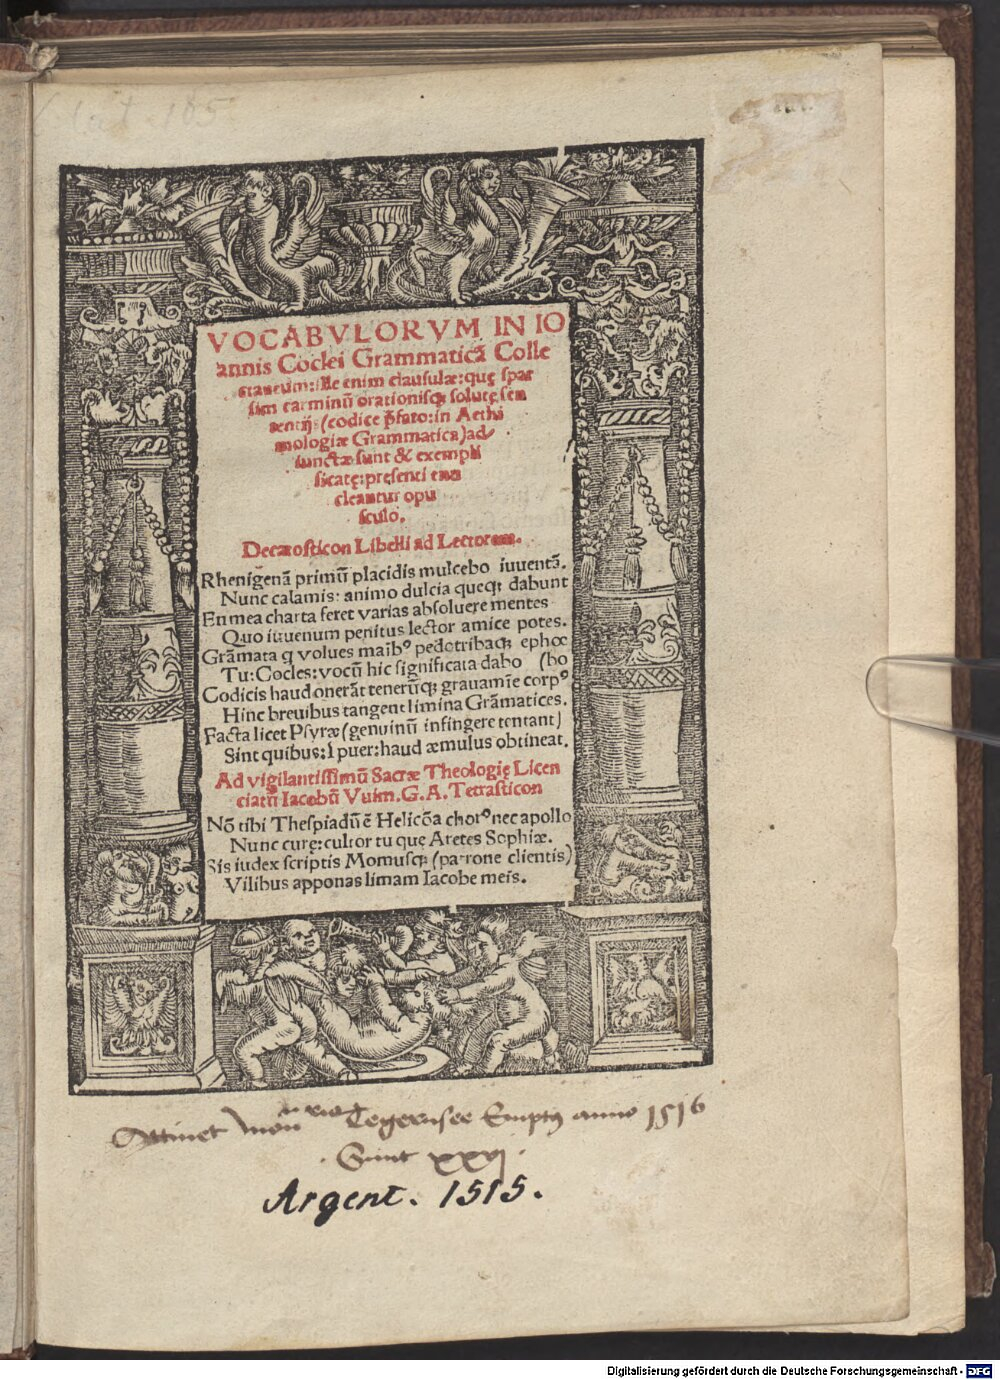 VOCABVLORVM IN IO
annis Coclei Grammaticã Colle
ctaneum: ille enim clausulæ: quę spar
sim carminũ orationisq; solutę sen
tentijs (codice p̃fato: in Aethi
mologiæ Grammatica) ad
iunctæ sunt & exempli
ficatę: presenti enu
cleantur opu
sculo.
Decatosticon Libelli ad Lectorem.
Rhenigenã primũ placidis mulcebo iuuentã.
Nunc calamis: animo dulcia queq; dabunt
En mea charta feret varias absoluere mentes
Quo iuuenum penitus lector amice potes.
Grãmata q volues maĩbꝰ pedotribaq; ephoe
Tu: Cocles: vocũ hic significata dabo (bo
Codicis haud onerãt tenerũq; grauamĩe corpꝰ
Hinc breuibus tangent limina Grãmatices.
Facta licet Psyræ (genuinũ infingere tentant)
Sint quibus: ĩ puer: haud æmulus obtineat.
Ad vigilantissimũ Sacræ Theologię Licen
ciatũ Iacobũ Vuim. G. A. Tetrasticon
Nõ tibi Thespiadũ ẽ Helicõa chorꝰ nec apollo
Nunc curę: cultor tu quę Aretes Sophiæ.
Sis iudex scriptis Momusq; (patrone clientis)
Vilibus apponas limam Iacobe meis.
Attinet Tegernsee Emptꝰ anno 1516
Sunt xxvj.
Argent. 1515.
Digitalisierung gefördert durch die Deutsche Forschungsgemeinschaft - DFG